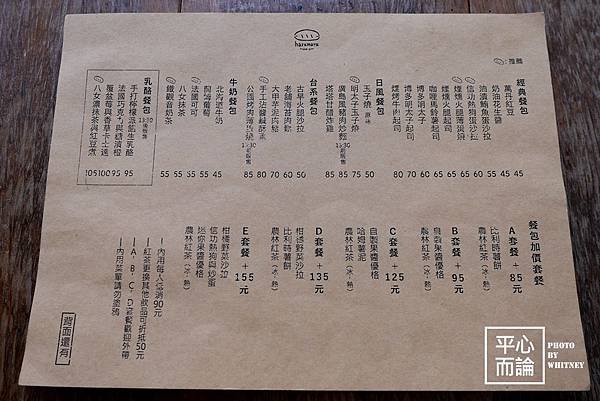 harenoya
:推薦
經典餐包
萬丹紅豆 45
奶油花生醬 45
油漬鮪魚蛋沙拉 55
信功熱狗蛋沙拉 65
燻燻火腿薄蛋燒 65
燻燻火腿起司 65
咖哩馬鈴薯起司 65
博多明太子 60
博多明太子起司 70
燻烤牛肉起司 80
日風餐包
玉子燒 原味 50
明太子玉子燒 75
廣島風豬肉炒麵 85
11:30前販售
塔塔甘醋炸雞 85
台系餐包
古早火腿沙拉 50
老舖海苔肉鬆 60
大甲芋泥肉鬆 70
手工沾醬鹹酥 80
公館烤肉薄蛋燒 85
11:30
牛奶餐包
北海道牛奶 45
蘭姆葡萄 55
法國可可 55
八女抹茶 55
鐵觀音奶茶 55
乳酪餐包
手打檸檬派餡生乳酪 95
13:30後販售
法國巧克力與糖漬橙 95
覆盆莓與香草卡士達 100
八女濃抹茶與紅豆煮 105
餐包加價套餐
A 套餐 + 85 元
比利時薯餅
農林紅茶（冰.熱）
B 套餐 + 95 元
自製果醬優格
農林紅茶（冰.熱）
C 套餐 + 125 元
自製果醬優格
哈姆薯泥
農林紅茶（冰.熱）
D 套餐 + 135 元
柑橘野菜沙拉
比利時薯餅
農林紅茶（冰.熱）
E 套餐 + 155 元
柑橘野菜沙拉
信功熱狗與炒蛋
迷你果醬優格
農林紅茶（冰.熱）
—內用每人低消90元
—紅茶更換其他飲品可折抵50元
—A、B、C、D套餐歡迎外帶
—內用菜單請勿塗鴉
背面還有
平心而論
PHOTO
BY
WHITNEY